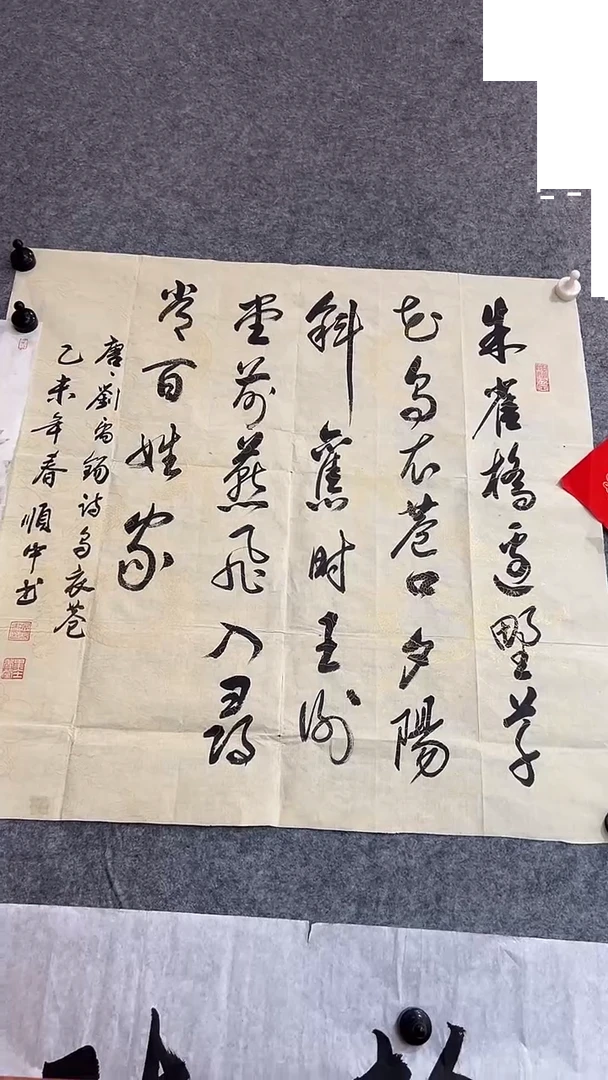 朱雀橋邊野草
花烏衣巷口夕陽
斜舊時王謝
堂前燕飛入尋
常百姓家
唐劉禹錫詩烏衣巷
乙未年春順中书